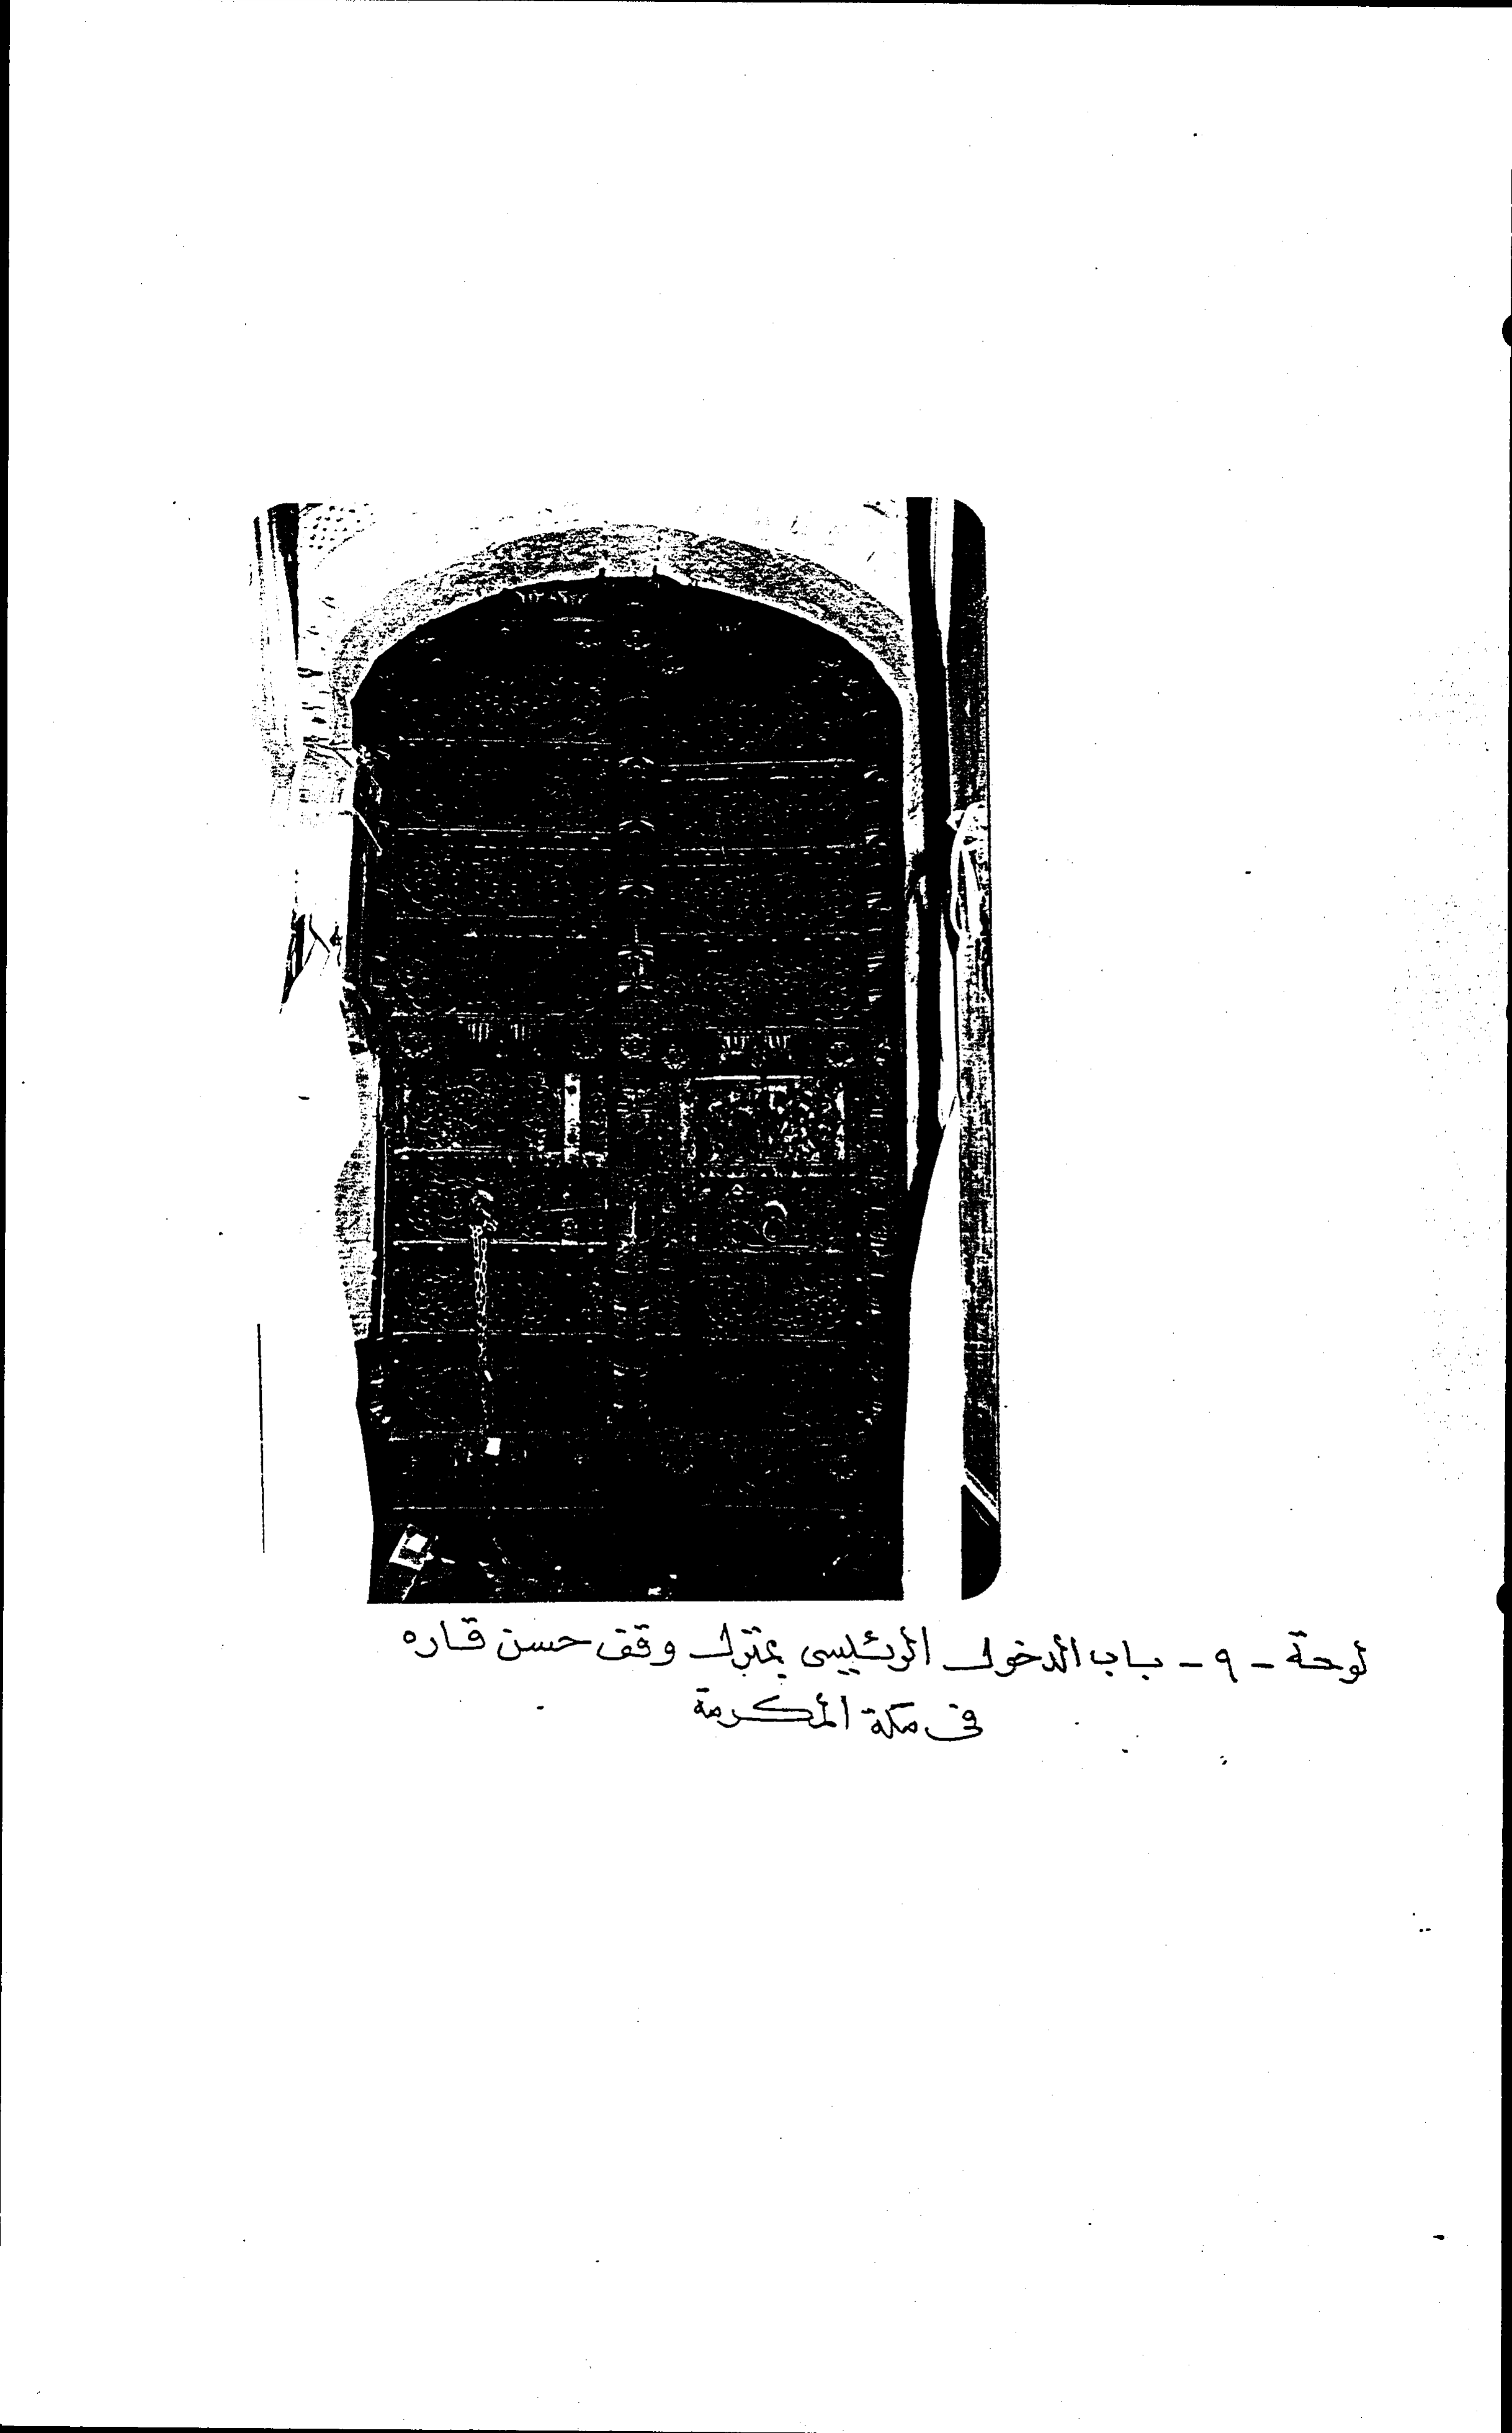 لوحة - ٩ - باب الدخول الرئيسى بمنزل وقف حسن قاره
فى مكة المكرمة